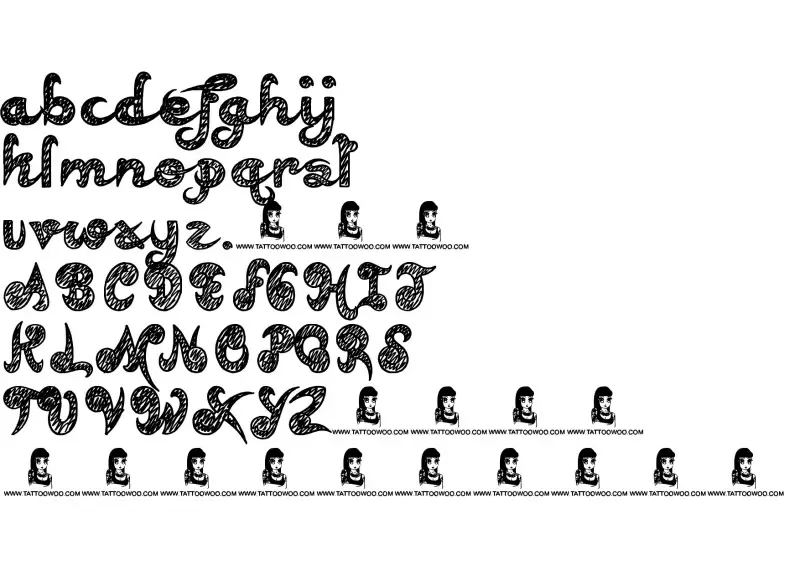 abcdefghij
klmnopqrst
uvwxyz. WWW.TATTOOWOO.COM WWW.TATTOOWOO.COM WWW.TATTOOWOO.COM
ABCDEFGHIJ
KLMNOPQRS
TUVWXYZ WWW.TATTOOWOO.COM WWW.TATTOOWOO.COM WWW.TATTOOWOO.COM WWW.TATTOOWOO.COM
WWW.TATTOOWOO.COM WWW.TATTOOWOO.COM WWW.TATTOOWOO.COM WWW.TATTOOWOO.COM WWW.TATTOOWOO.COM WWW.TATTOOWOO.COM WWW.TATTOOWOO.COM WWW.TATTOOWOO.COM WWW.TATTOOWOO.COM WWW.TATTOOWOO.COM